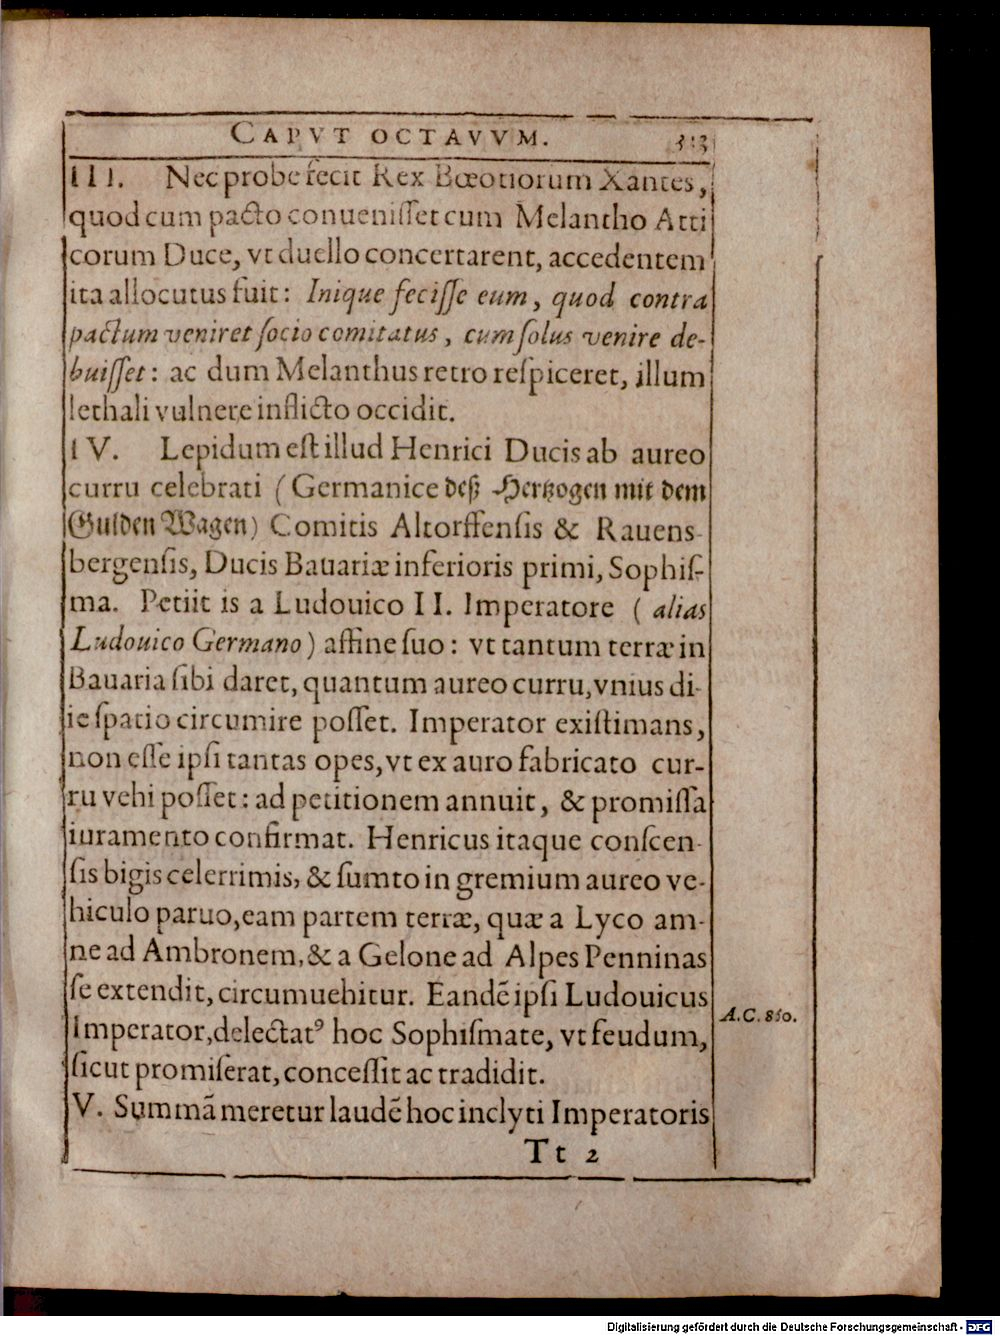 CAPVT OCTAVVM.
III. Nec probe fecit Rex Bœotiorum Xantes,
quod cum pacto conueniſſet cum Melantho Atti
corum Duce, vt duello concertarent, accedentem
ita allocutus fuit: Inique feciſſe eum, quod contra
pactum veniret ſocio comitatus, cum ſolus venire de-
buiſſet: ac dum Melanthus retro reſpiceret, illum
lethali vulnere inflicto occidit.
IV. Lepidum eſt illud Henrici Ducis ab aureo
curru celebrati (Germanice deß Hertzogen mit dem
Gulden Wagen) Comitis Altorffenſis & Rauens-
bergenſis, Ducis Bauariæ inferioris primi, Sophiſ-
ma. Petiit is a Ludouico II. Imperatore (alias
Ludouico Germano) affine ſuo: vt tantum terræ in
Bauaria ſibi daret, quantum aureo curru, vnius di-
ie ſpatio circumire poſſet. Imperator exiſtimans,
non eſſe ipſi tantas opes, vt ex auro fabricato cur-
ru vehi poſſet: ad petitionem annuit, & promiſſa
iuramento confirmat. Henricus itaque conſcen-
ſis bigis celerrimis, & ſumto in gremium aureo ve-
hiculo paruo, eam partem terræ, quæ a Lyco am-
ne ad Ambronem, & a Gelone ad Alpes Penninas
ſe extendit, circumuehitur. Eandē ipſi Ludouicus
A.C. 860.
Imperator, delectatꝰ hoc Sophiſmate, vt feudum,
ſicut promiſerat, conceſſit ac tradidit.
V. Summā meretur laudē hoc inclyti Imperatoris
Tt 2
Digitalisierung gefördert durch die Deutsche Forschungsgemeinschaft - DFG